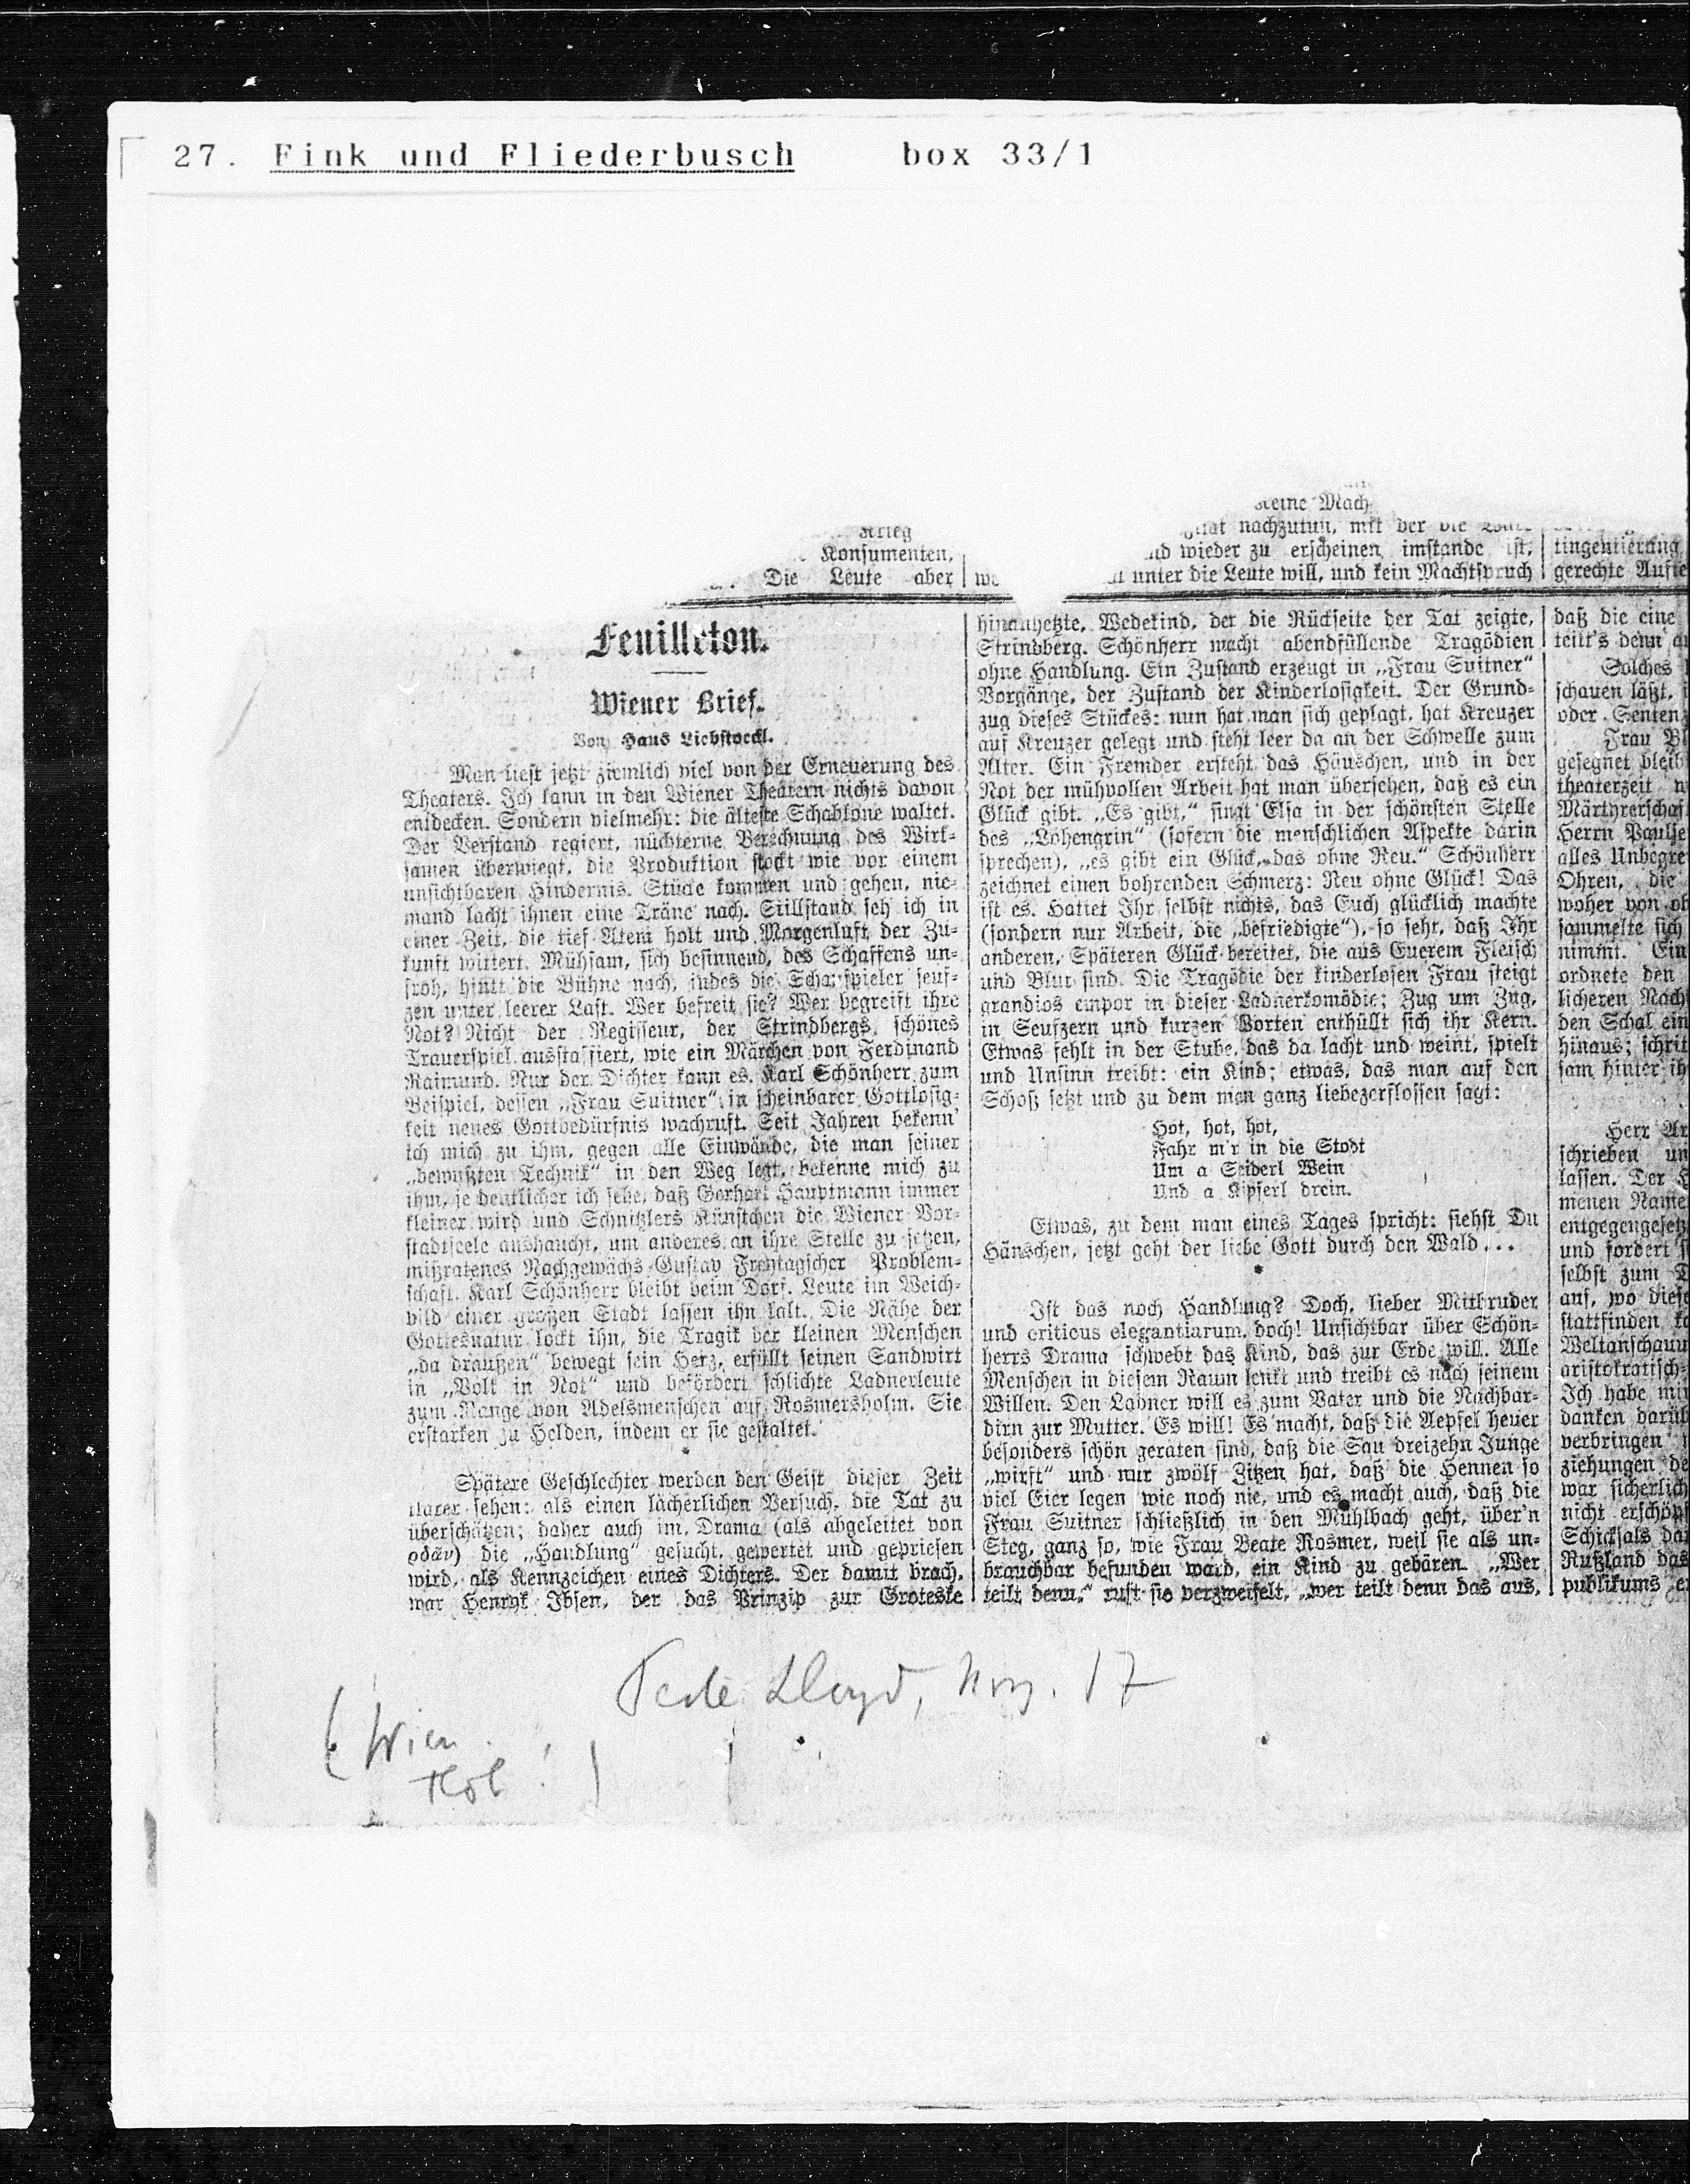 27. Fink und Fliederbusch box 33/1
Krieg
Konsumenten,
Die Leute aber
keine Mach
nachzutun, mit der die
wieder zu erscheinen imstande ist,
unter die Leute will, und kein Machtspruch
tingentierung
gerechte Aufte
Feuilleton.
Wiener Brief.
Von Hans Liebstoeckl.
Man liest jetzt ziemlich viel von der Erneuerung des
Theaters. Ich kann in den Wiener Theatern nichts davon
entdecken. Sondern vielmehr: die älteste Schablone waltet.
Der Verstand regiert, nüchterne Berechnung des Wirk-
samen überwiegt, die Produktion stockt wie vor einem
unsichtbaren Hindernis. Stücke kommen und gehen, nie-
mand lacht ihnen eine Träne nach. Stillstand seh ich in
einer Zeit, die tief Atem holt und Morgenluft der Zu-
kunft wittert. Mühsam, sich besinnend, des Schaffens un-
froh, hinkt die Bühne nach, indes die Schauspieler seuf-
zen unter leerer Last. Wer befreit sie? Wer begreift ihre
Not? Nicht der Regisseur, der Strindbergs schönes
Trauerspiel ausstaffiert, wie ein Märchen von Ferdinand
Raimund. Nur der Dichter kann es. Karl Schönherr zum
Beispiel, dessen „Frau Suitner“ in scheinbarer Gottlosig-
keit neues Gottbedürfnis wachruft. Seit Jahren bekenn'
ich mich zu ihm, gegen alle Einwände, die man seiner
„bewußten Technik“ in den Weg legt, bekenne mich zu
ihm, je deutlicher ich sehe, daß Gerhart Hauptmann immer
kleiner wird und Schnitzlers Künstchen die Wiener Vor-
stadtseele aushaucht, um anderes an ihre Stelle zu setzen,
mißratenes Nachgewächs Gustav Freytagscher Problem-
schaft. Karl Schönherr bleibt beim Dorf. Leute im Weich-
bild einer großen Stadt lassen ihn kalt. Die Nähe der
Gottesnatur lockt ihn, die Tragik der kleinen Menschen
„da draußen“ bewegt sein Herz, erfüllt seinen Sandwirt
in „Volk in Not“ und befördert schlichte Ladnerleute
zum Range von Adelsmenschen auf Rosmersholm. Sie
erstarken zu Helden, indem er sie gestaltet.
*
Spätere Geschlechter werden den Geist dieser Zeit
klarer sehen: als einen lächerlichen Versuch, die Tat zu
überschätzen; daher auch im Drama (als abgeleitet von
δρᾶν) die „Handlung“ gesucht, gewertet und gepriesen
wird, als Kennzeichen eines Dichters. Der damit brach,
war Henryk Ibsen, der das Prinzip zur Groteske
hinanhetzte, Wedekind, der die Rückseite der Tat zeigte,
Strindberg. Schönherr macht abendfüllende Tragödien
ohne Handlung. Ein Zustand erzeugt in „Frau Suitner“
Vorgänge, der Zustand der Kinderlosigkeit. Der Grund-
zug dieses Stückes: nun hat man sich geplagt, hat Kreuzer
auf Kreuzer gelegt und steht leer da an der Schwelle zum
Alter. Ein Fremder ersteht das Häuschen, und in der
Not der mühvollen Arbeit hat man übersehen, daß es ein
Glück gibt. „Es gibt,“ singt Elsa in der schönsten Stelle
des „Lohengrin“ (sofern die menschlichen Aspekte darin
sprechen), „es gibt ein Glück, das ohne Reu.“ Schönherr
zeichnet einen bohrenden Schmerz: Reu ohne Glück! Das
ist es. Hattet Ihr selbst nichts, das Euch glücklich machte
(sondern nur Arbeit, die „befriedigte“), so seht, daß Ihr
anderen, Späteren Glück bereitet, die aus Euerem Fleisch
und Blut sind. Die Tragödie der kinderlosen Frau steigt
grandios empor in dieser Ladnerkomödie; Zug um Zug,
in Seufzern und kurzen Worten enthüllt sich ihr Kern.
Etwas fehlt in der Stube, das da lacht und weint, spielt
und Unsinn treibt: ein Kind; etwas, das man auf den
Schoß setzt und zu dem man ganz liebezerflossen sagt:
Hot, hot, hot,
Fahr m'r in die Stodt
Um a Seiderl Wein
Und a Kipferl drein.
Etwas, zu dem man eines Tages spricht: siehst Du
Hänschen, jetzt geht der liebe Gott durch den Wald...
*
Ist das noch Handlung? Doch, lieber Mitbruder
und criticus elegantiarum, doch! Unsichtbar über Schön-
herrs Drama schwebt das Kind, das zur Erde will. Alle
Menschen in diesem Raum lenkt und treibt es nach seinem
Willen. Den Ladner will es zum Vater und die Nachbar-
dirn zur Mutter. Es will! Es macht, daß die Aepfel heuer
besonders schön geraten sind, daß die Sau dreizehn Junge
„wirft“ und nur zwölf Zitzen hat, daß die Hennen so
viel Eier legen wie noch nie, und es macht auch, daß die
Frau Suitner schließlich in den Mühlbach geht, über'n
Steg, ganz so, wie Frau Beate Rosmer, weil sie als un-
brauchbar befunden ward, ein Kind zu gebären. „Wer
teilt denn,“ ruft sie verzweifelt, „wer teilt denn das aus,
daß die eine
teilt's denn
Solches
schauen läßt,
oder Sentenz
Frau Bl
gesegnet bleib
theaterzeit
Märtyrerschaf
Herrn Paulse
alles Unbegre
Ohren, die
woher von ob
sammelte sich
nimmt. Ein
ordnete den
licheren Nach
den Schal ein
hinaus; schrit
sam hinter ih
Herr Ar
schrieben un
lassen. Der H
menen Name
entgegengesetz
und fordert s
selbst zum D
auf, wo diese
stattfinden ka
Weltanschauu
aristokratisch
Ich habe mir
danken darüb
verbringen
ziehungen de
war sicherlich
nicht erschöpf
Schicksals dar
Rußland das
publikums er
Pester Lloyd, Nov. 17
(Wien